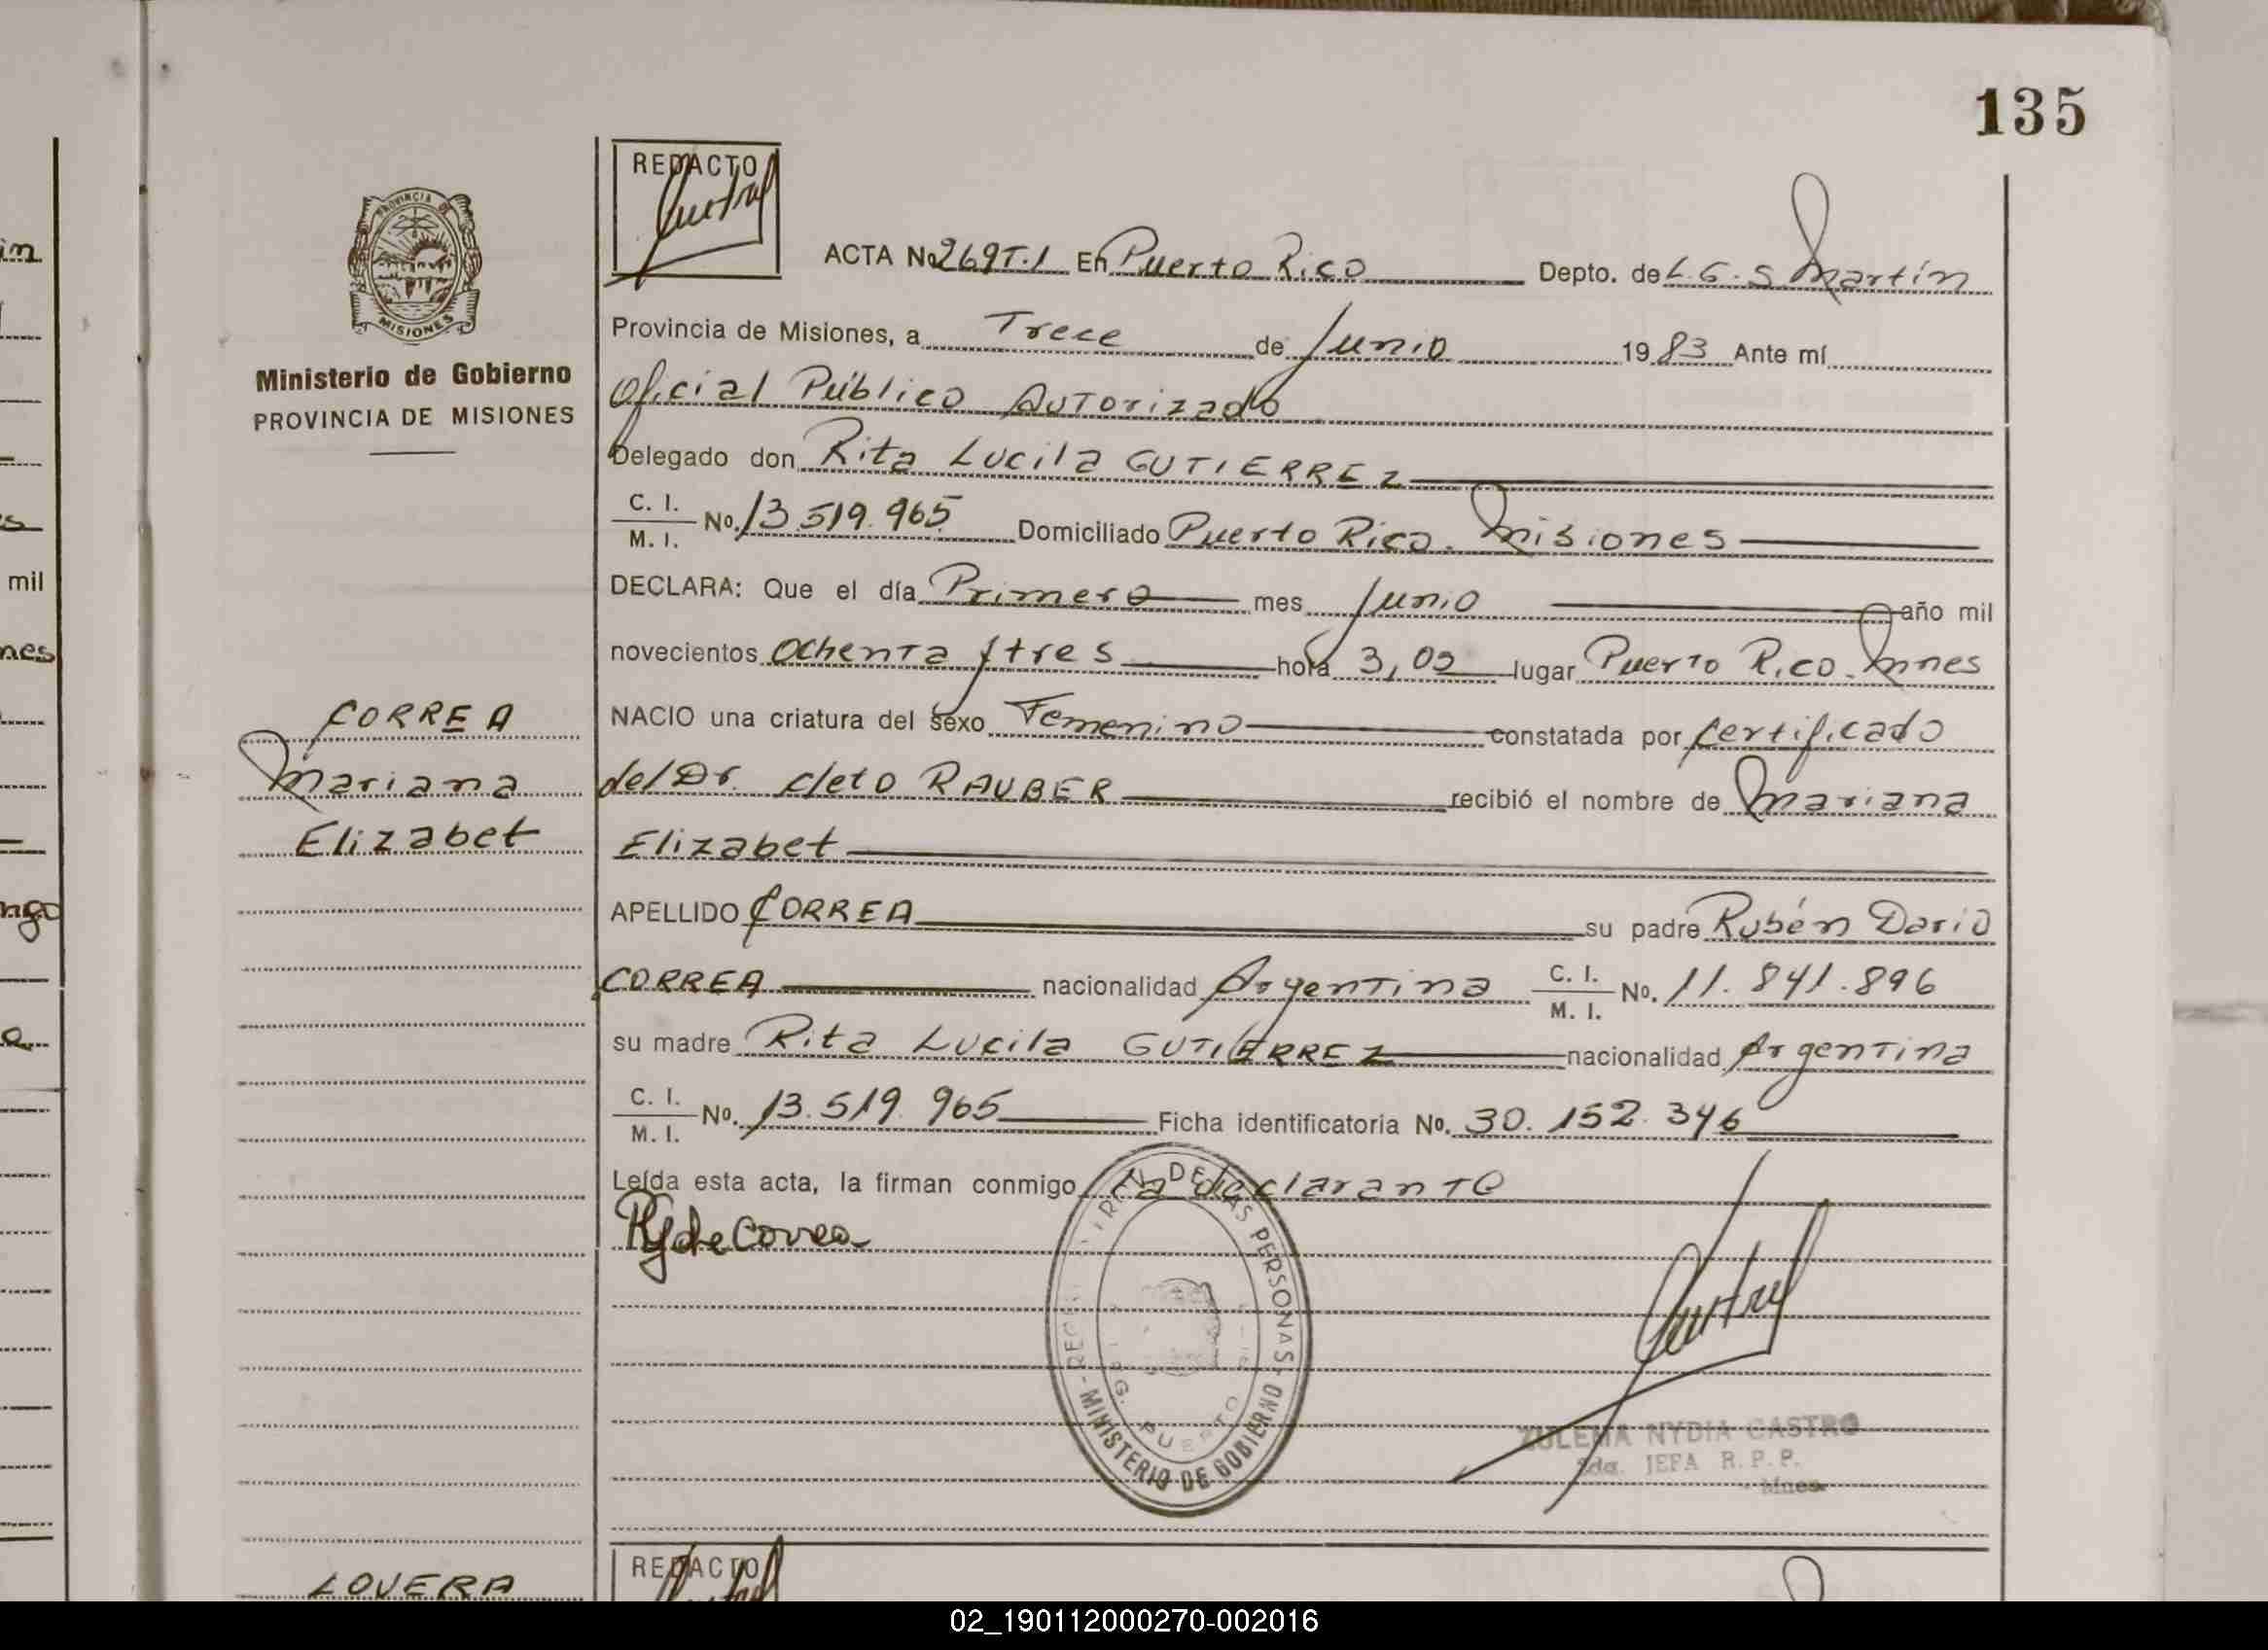 135
in
s
mil
nes
ngo
a
PROVINCIA DE MISIONES
Ministerio de Gobierno
PROVINCIA DE MISIONES
CORREA
Mariana
Elizabet
LOVERA
REDACTO
ACTA No 269 T.1 En Puerto Rico Depto. de L. G. S Martín
Provincia de Misiones, a Trece de Junio 1983 Ante mí
Oficial Público Autorizado
Delegado don Rita Lucila GUTIERREZ
C. I. / M. I. No. 13.519.965 Domiciliado Puerto Rico. Misiones
DECLARA: Que el día Primero mes Junio año mil
novecientos ochenta y tres hora 3,02 lugar Puerto Rico. Mnes
NACIO una criatura del sexo Femenino constatada por certificado
del Dr. Cleto RAUBER recibió el nombre de Mariana
Elizabet
APELLIDO CORREA su padre Rubén Dario
CORREA nacionalidad Argentina C. I. / M. I. No. 11.841.896
su madre Rita Lucila GUTIERREZ nacionalidad Argentina
C. I. / M. I. No. 13.519.965 Ficha identificatoria No. 30.152.346
Leída esta acta, la firman conmigo la declarante
de Correa
DE LAS PERSONAS
MINISTERIO DE GOBIERNO
PUERTO
ZULEMA NYDIA CASTRO
2da. JEFA R. P. P.
Mnes.
REDACTO
02_190112000270-002016